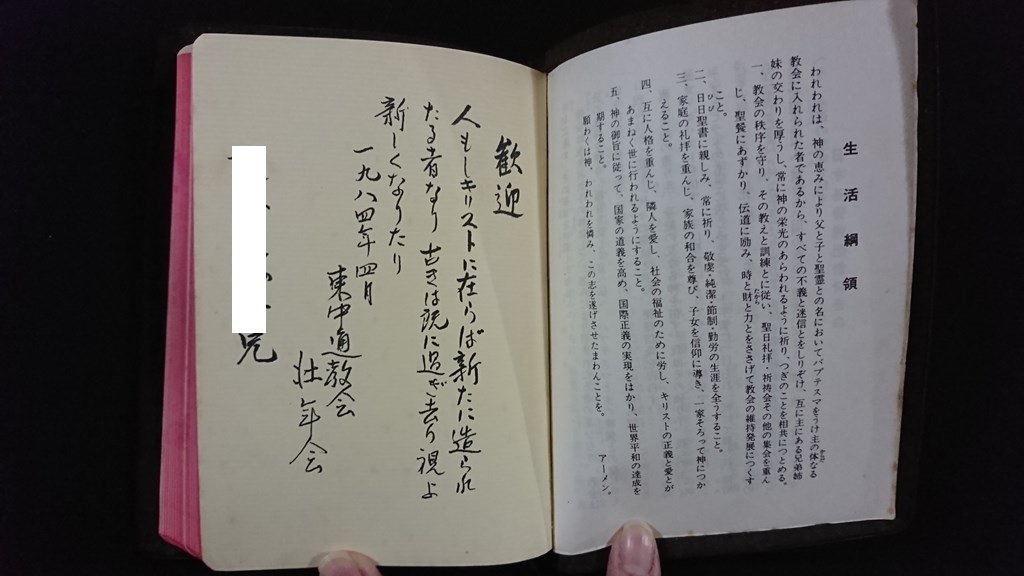 生活綱領
われわれは、神の恵みにより父と子と聖霊との名においてバプテスマをうけ主の体なる
教会に入れられた者であるから、すべての不義と迷信とをしりぞけ、互に主にある兄弟姉
妹の交わりを厚うし、常に神の栄光のあらわれるように祈り、つぎのことを相共につとめる。
一、教会の秩序を守り、その教えと訓練とに従い、聖日礼拝・祈祷会その他の集会を重ん
じ、聖餐にあずかり、伝道に励み、時と財と力とをささげて教会の維持発展につくす
こと。
二、日日聖書に親しみ、常に祈り、敬虔・純潔・節制・勤労の生涯を全うすること。
三、家庭の礼拝を重んじ、家族の和合を尊び、子女を信仰に導き、一家そろって神につか
えること。
四、互に人格を重んじ、隣人を愛し、社会の福祉のために労し、キリストの正義と愛とが
あまねく世に行われるようにすること。
五、神の御旨に従って、国家の道義を高め、国際正義の実現をはかり、世界平和の達成を
期すること。
願わくは神、われわれを憐み、この志を遂げさせたまわんことを。 アーメン。
歓迎
人もしキリストに在らば新たに造られ
たる者なり 古きは既に過ぎ去り視よ
新しくなりたり
一九八四年四月
東中通教会
壮年会
兄